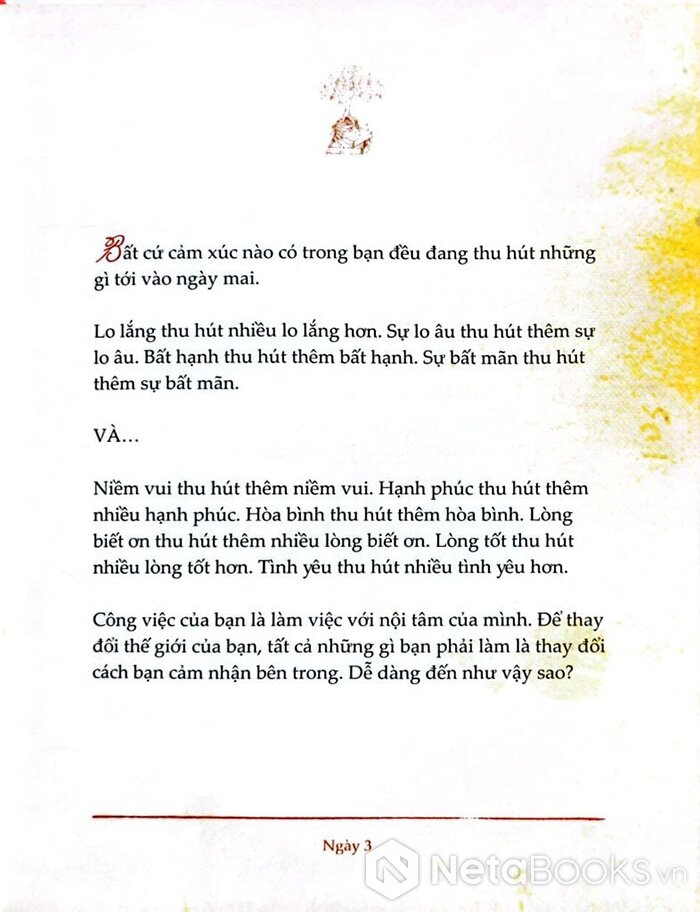 Bất cứ cảm xúc nào có trong bạn đều đang thu hút những
gì tới vào ngày mai.
Lo lắng thu hút nhiều lo lắng hơn. Sự lo âu thu hút thêm sự
lo âu. Bất hạnh thu hút thêm bất hạnh. Sự bất mãn thu hút
thêm sự bất mãn.
VÀ...
Niềm vui thu hút thêm niềm vui. Hạnh phúc thu hút thêm
nhiều hạnh phúc. Hòa bình thu hút thêm hòa bình. Lòng
biết ơn thu hút thêm nhiều lòng biết ơn. Lòng tốt thu hút
nhiều lòng tốt hơn. Tình yêu thu hút nhiều tình yêu hơn.
Công việc của bạn là làm việc với nội tâm của mình. Để thay
đổi thế giới của bạn, tất cả những gì bạn phải làm là thay đổi
cách bạn cảm nhận bên trong. Dễ dàng đến như vậy sao?
Ngày 3
NetaBooks.vn